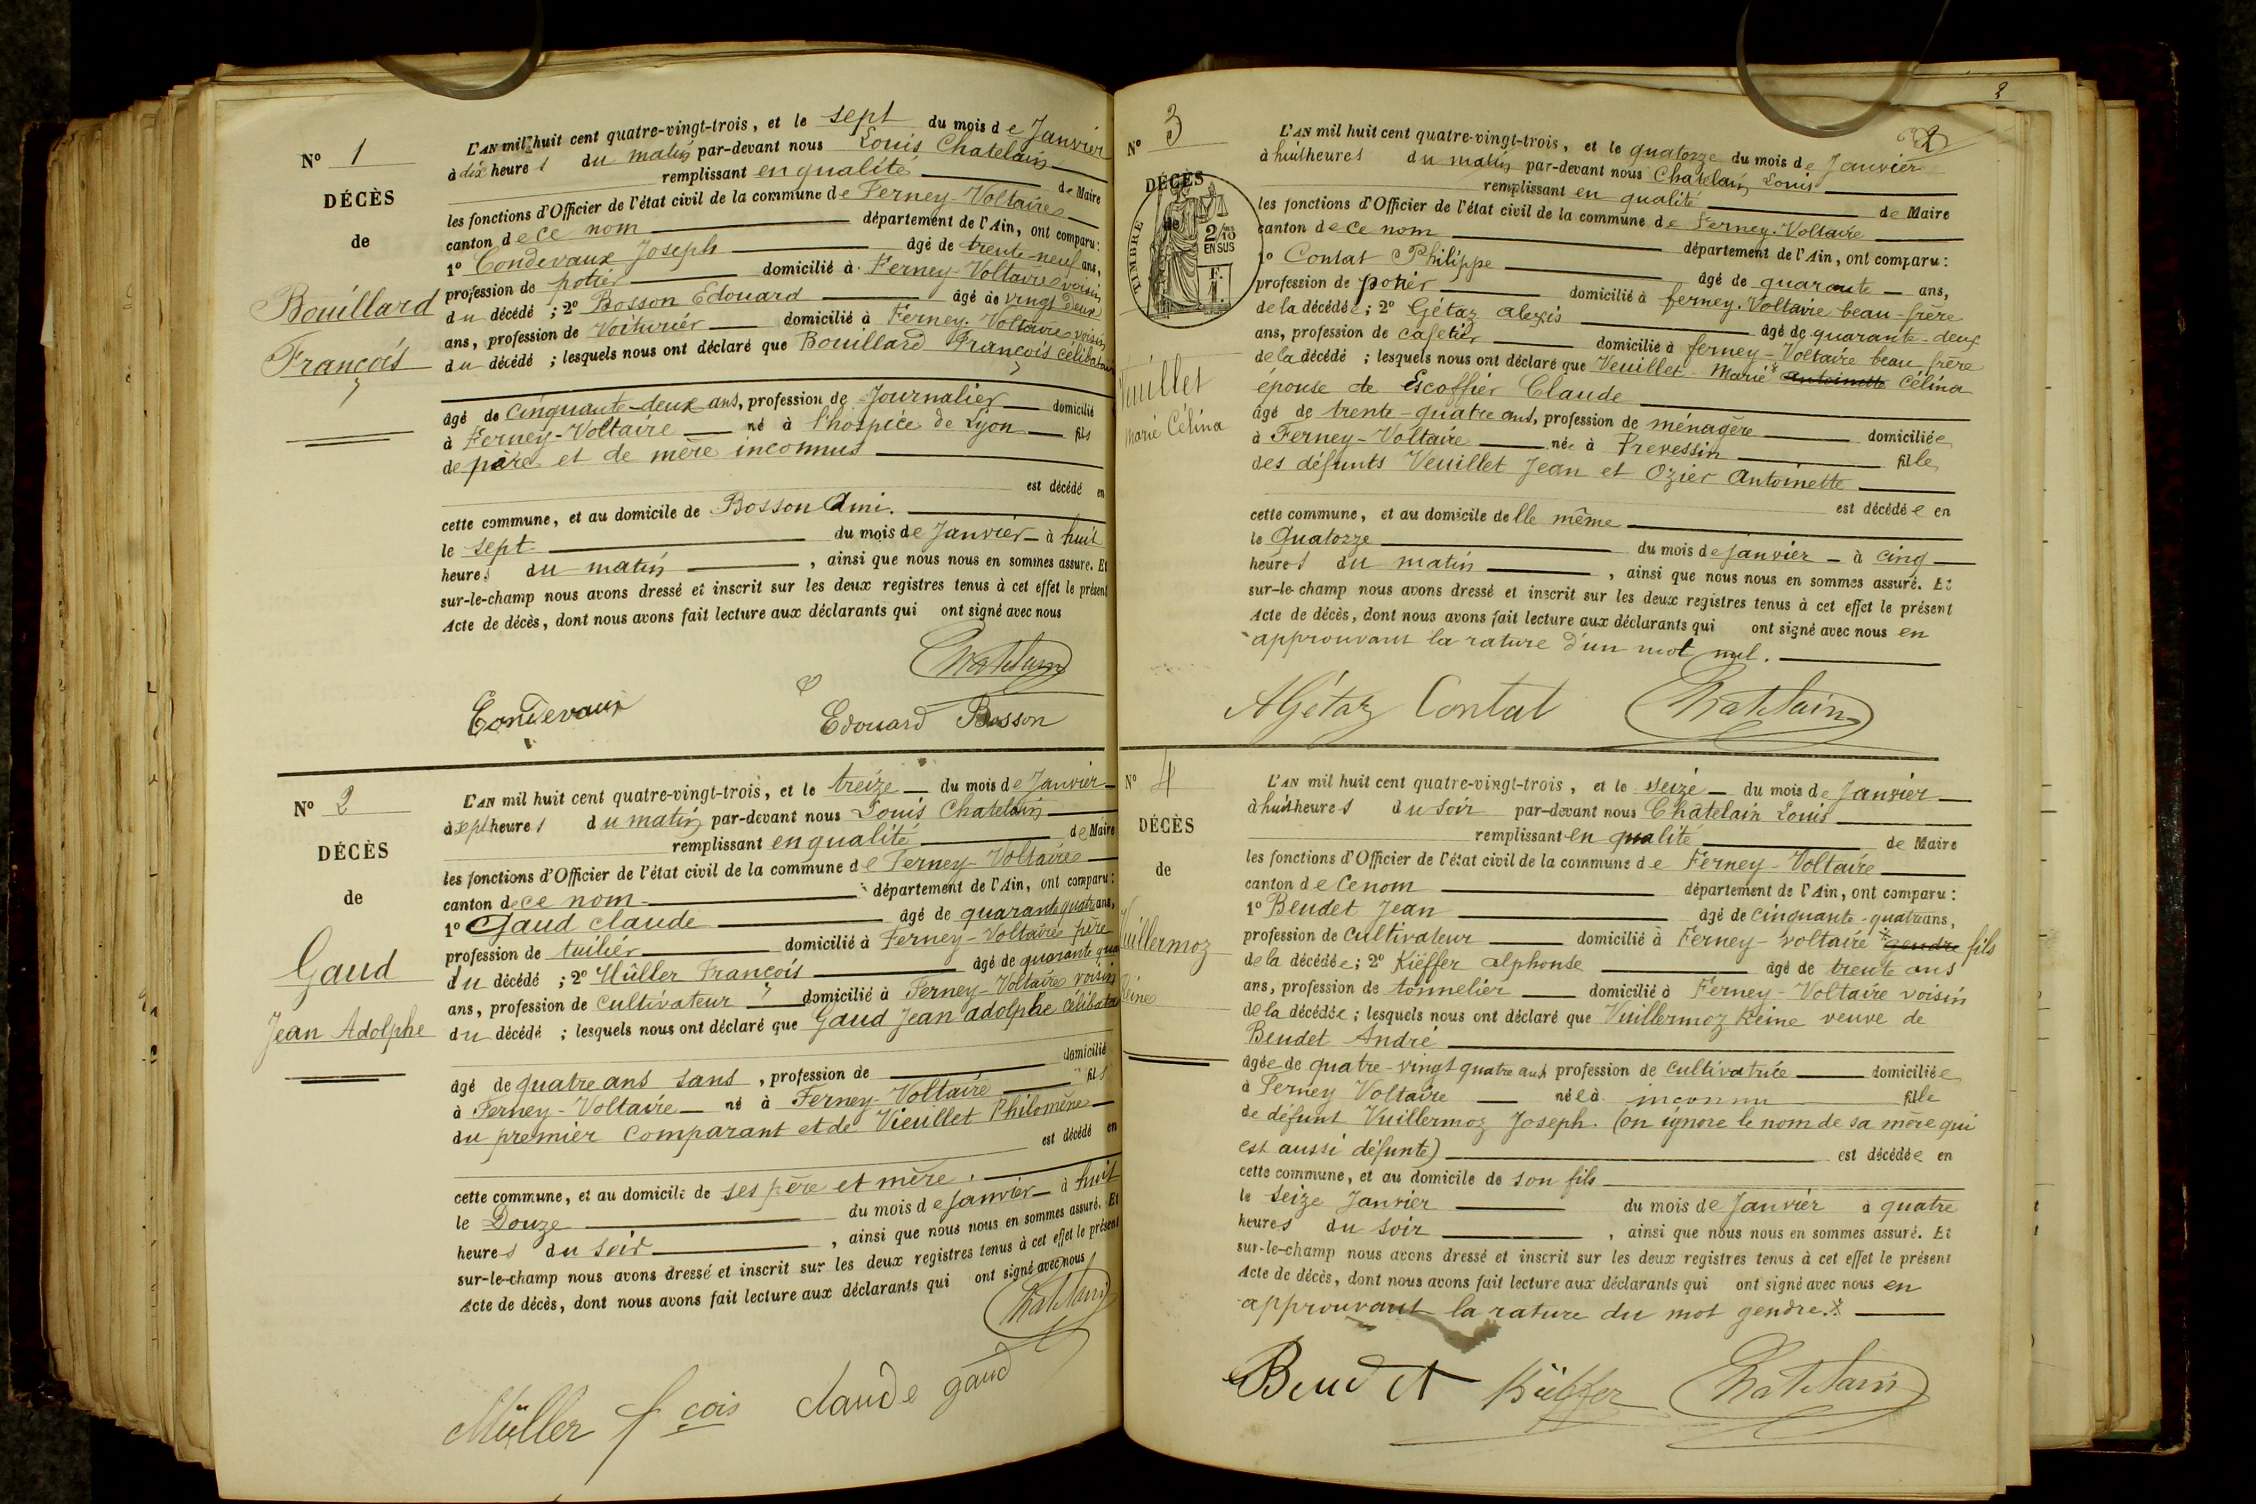 N° 1
DÉCÈS
de
Bouillard
François
L'AN mil huit cent quatre-vingt-trois, et le sept du mois de Janvier
à dix heures du matin par-devant nous Louis Chatelain
remplissant en qualité de Maire
les fonctions d'Officier de l'état civil de la commune de Ferney-Voltaire
canton de ce nom département de l'Ain, ont comparu:
1° Condevaux Joseph âgé de trente-neuf ans,
profession de potier domicilié à Ferney-Voltaire voisin
du décédé ; 2° Bosson Edouard âgé de vingt deux
ans, profession de Voiturier domicilié à Ferney-Voltaire voisin
du décédé ; lesquels nous ont déclaré que Bouillard François célibataire
âgé de cinquante-deux ans, profession de Journalier domicilié
à Ferney-Voltaire né à l'hospice de Lyon fils
de père et de mère inconnus
est décédé en
cette commune, et au domicile de Bosson Ami.
le sept du mois de Janvier à huit
heures du matin , ainsi que nous nous en sommes assuré. Et
sur-le-champ nous avons dressé et inscrit sur les deux registres tenus à cet effet le présent
Acte de décès, dont nous avons fait lecture aux déclarants qui ont signé avec nous
Chatelain
Condevaux Edouard Bosson
N° 2
DÉCÈS
de
Gaud
Jean Adolphe
L'AN mil huit cent quatre-vingt-trois, et le treize du mois de Janvier
à sept heures du matin par-devant nous Louis Chatelain
remplissant en qualité de Maire
les fonctions d'Officier de l'état civil de la commune de Ferney-Voltaire
canton de ce nom département de l'Ain, ont comparu:
1° Gaud Claude âgé de quarante quatre ans,
profession de tuilier domicilié à Ferney-Voltaire père
du décédé ; 2° Müller François âgé de quarante qua
ans, profession de cultivateur domicilié à Ferney-Voltaire voisin
du décédé ; lesquels nous ont déclaré que Gaud Jean adolphe célibata
âgé de quatre ans sans , profession de domicilié
à Ferney-Voltaire né à Ferney-Voltaire fils
du premier comparant et de Vieuillet Philomène
est décédé en
cette commune, et au domicile de ses père et mère.
le Douze du mois de Janvier à huit
heures du soir , ainsi que nous nous en sommes assuré. Et
sur-le-champ nous avons dressé et inscrit sur les deux registres tenus à cet effet le présent
Acte de décès, dont nous avons fait lecture aux déclarants qui ont signé avec nous
Chatelain
Müller fçois claude gaud
2
2
N° 3
DÉCÈS
de
TIMBRE
2/10
EN SUS
Veuillet
Marie Célina
L'AN mil huit cent quatre-vingt-trois, et le quatorze du mois de Janvier
à huit heures du matin par-devant nous Chatelain Louis
remplissant en qualité de Maire
les fonctions d'Officier de l'état civil de la commune de Ferney-Voltaire
canton de ce nom département de l'Ain, ont comparu:
1° Contat Philippe âgé de quarante ans,
profession de potier domicilié à ferney-Voltaire beau-frère
de la décédée ; 2° Gétaz alexis âgé de quarante-deux
ans, profession de cafetier domicilié à ferney-Voltaire beau frère
de la décédé ; lesquels nous ont déclaré que Veuillet Marie Antoinette Célina
épouse de Escoffier Claude
âgé de trente-quatre ans, profession de ménagère domiciliée
à Ferney-Voltaire née à Prevessin fille
des défunts Veuillet Jean et Ozier Antoinette
est décédée en
cette commune, et au domicile delle même
le Quatorze du mois de janvier à cinq
heures du matin , ainsi que nous nous en sommes assuré. Et
sur-le-champ nous avons dressé et inscrit sur les deux registres tenus à cet effet le présent
Acte de décès, dont nous avons fait lecture aux déclarants qui ont signé avec nous en
approuvant la rature d'un mot nul.
AGétaz Contat Chatelain
N° 4
DÉCÈS
de
Vuillermoz
Reine
L'AN mil huit cent quatre-vingt-trois, et le seize du mois de Janvier
à huit heures du soir par-devant nous Chatelain Louis
remplissant en qualité de Maire
les fonctions d'Officier de l'état civil de la commune de Ferney-Voltaire
canton de ce nom département de l'Ain, ont comparu:
1° Beudet Jean âgé de cinquante-quatre ans,
profession de Cultivateur domicilié à Ferney-Voltaire gendre fils
de la décédée ; 2° Kieffer alphonse âgé de trente ans
ans, profession de tonnelier domicilié à Ferney-Voltaire voisin
de la décédée ; lesquels nous ont déclaré que Vuillermoz Reine veuve de
Beudet André
âgée de quatre-vingt quatre ans profession de cultivatrice domiciliée
à Ferney Voltaire née à inconnu fille
de défunt Vuillermoz Joseph. (on ignore le nom de sa mère qui
est aussi défunte) est décédée en
cette commune, et au domicile de son fils
le seize Janvier du mois de Janvier à quatre
heures du soir , ainsi que nous nous en sommes assuré. Et
sur-le-champ nous avons dressé et inscrit sur les deux registres tenus à cet effet le présent
Acte de décès, dont nous avons fait lecture aux déclarants qui ont signé avec nous en
approuvant la rature du mot gendre.
Beudet Kieffer Chatelain